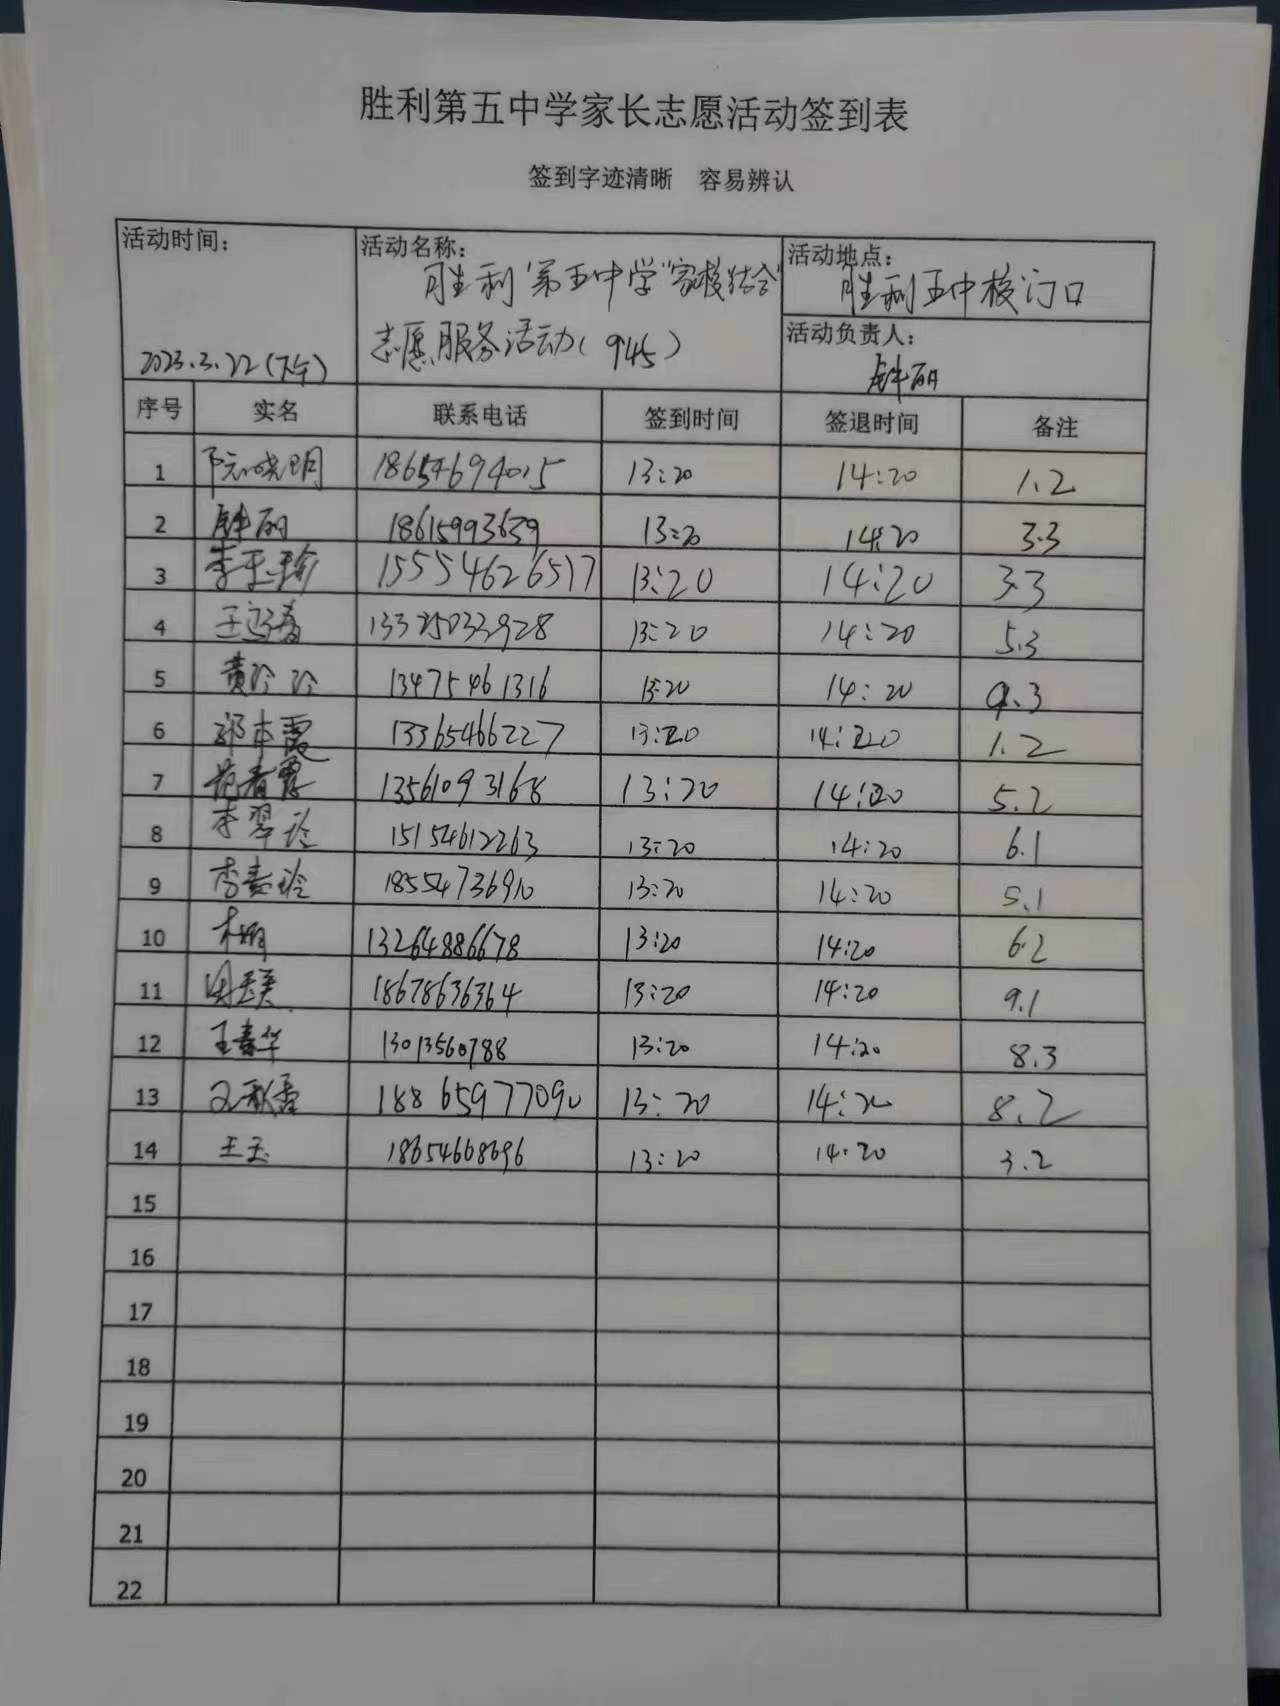 胜利第五中学家长志愿活动签到表
签到字迹清晰 容易辨认
活动时间： 活动名称： 活动地点：
胜利第五中学"家校结合" 胜利五中校门口
志愿服务活动（945） 活动负责人：
2023.3.22(下午) 钟丽
序号 实名 联系电话 签到时间 签退时间 备注
1 阮晓明 18654694015 13:20 14:20 1.2
2 钟丽 18615993639 13:20 14:20 3.3
3 15554626517 13:20 14:20 3.3
4 13325033928 13:20 14:20 5.3
5 黄玲玲 13475461316 13:20 14:20 9.3
6 郭本霞 13365466227 13:20 14:20 1.2
7 范春霞 13561093168 13:20 14:20 5.2
8 李翠玲 15154612263 13:20 14:20 6.1
9 李 玲 18554736910 13:20 14:20 5.1
10 13264886678 13:20 14:20 6.2
11 18678636364 13:20 14:20 9.1
12 王春华 13013560788 13:20 14:20 8.3
13 18865977090 13:20 14:20 8.2
14 王玉 18654668696 13:20 14:20 3.2
15
16
17
18
19
20
21
22